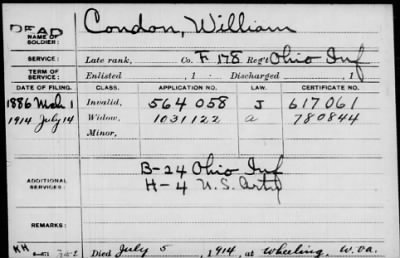 DEAD
NAME OF SOLDIER: Condon, William
SERVICE: Late rank, Co. F 178 Reg't Ohio Inf
TERM OF SERVICE: Enlisted , 1 Discharged , 1
DATE OF FILING. CLASS. APPLICATION NO. LAW. CERTIFICATE NO.
1886 Mch 1 Invalid, 564 058 J 617 061
1914 July 14 Widow, 1031122 a 780844
Minor,
ADDITIONAL SERVICES: B-24 Ohio Inf
H-4 U.S. Arty
REMARKS:
KH
Died July 5 , 1914, at Wheeling, W.Va.